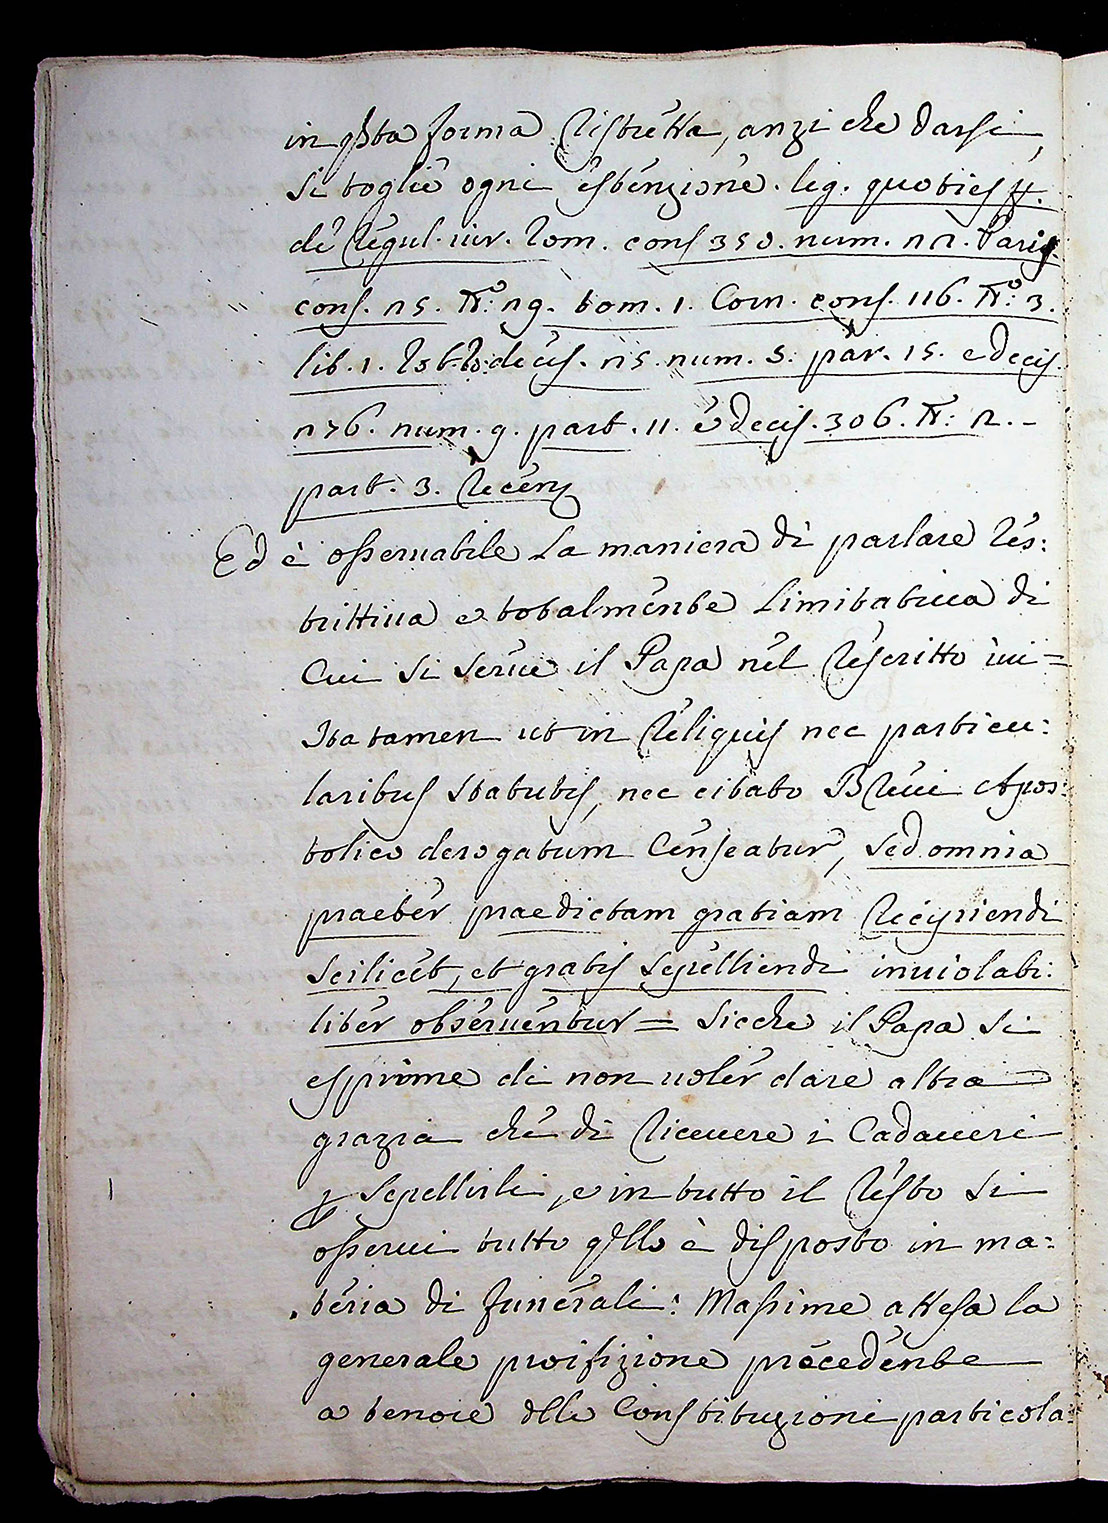 in qsta forma ristretta, anzi che darsi,
si toglie ogni estenzione. leg. quoties ff.
de regul. iur. Rom. cons 350. num. 22. Paris.
cons. 25. N.º 29. tom. 1. Corn. cons. 116. N.º 3.
lib. 1. decis. 25. num. 5. par. 15. e decis.
276. num. 9. part. 11. e decis. 306. N: 2. -
part. 3. recens
Ed è osseruabile la maniera di parlare res:
trittiua e totalmente limitatiua di
cui si serue il Papa nel rescritto iui =
Ita tamen ut in reliquis nec particu:
laribus statutis, nec citato Breui Apos:
tolico derogatum censeatur, sed omnia
praeter praedictam gratiam recipiendi
scilicet, et gratis sepelliendi inuiolabi:
liter obseruentur = Sicche il Papa si
esprime di non uoler dare altra
grazia che di riceuere i Cadaueri
p sepellirli, e in tutto il resto si
osserui tutto qllo è disposto in ma:
teria di funerali: Massime attesa la
generale proifizione precedente
a tenore dlle Constituzioni particola: